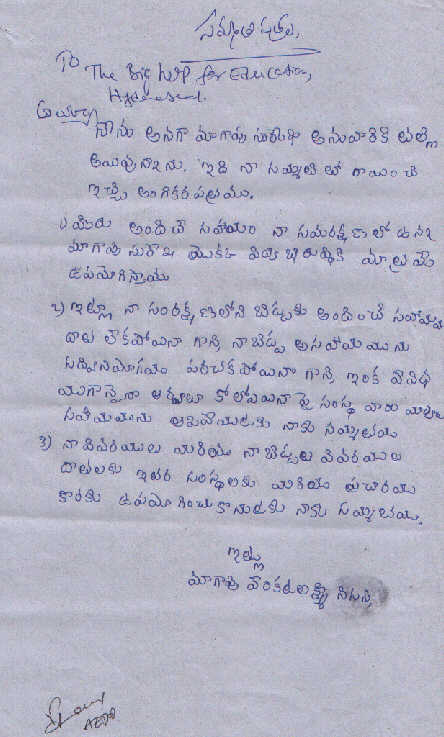 సమ్మతి పత్రం
To
The Big help for Education,
Hyderabad.
అయ్యా
నేను అనగా మాగాపు సురేఖ అనువారికి తల్లి
అయివున్నాను. ఇది నా సమ్మతి తో
ఇచ్చే అంగీకర పత్రము.
1) మీరు అందించే సహాయం నా సంరక్షణలో ఉన్న
మాగాపు సురేఖ యొక్క విద్యాభివృద్ధికి మాత్రమే
ఉపయోగిస్తాము
2) ఇట్లు నా సంరక్షణలోని బిడ్డకు అందించే
దాతలు లేకపోయినా గాని నా బిడ్డ ఆ సహాయమును
సద్వినియోగం పరచకపోయినా గాని ఇంక ఏవిధ
ముగానైనా అర్హతా కోల్పోయినా పై సంస్థ వారు
సహాయమును ఆపివేయుటకు నాకు సమ్మతమే
3) నా వివరములు మరియు నా బిడ్డ వివరములు
దాతలకు ఇతర సంస్థలకు మరియు ప్రచారము
కొరకు ఉపయోగించుకొనుటకు నాకు సమ్మతమే.
ఇట్లు
మాగాపు వెంకటలక్ష్మి